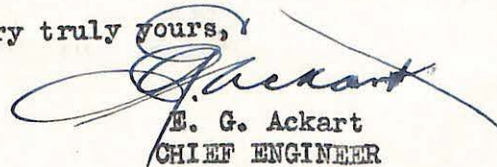 ry truly yours,
E. G. Ackart
E. G. Ackart
CHIEF ENGINEER